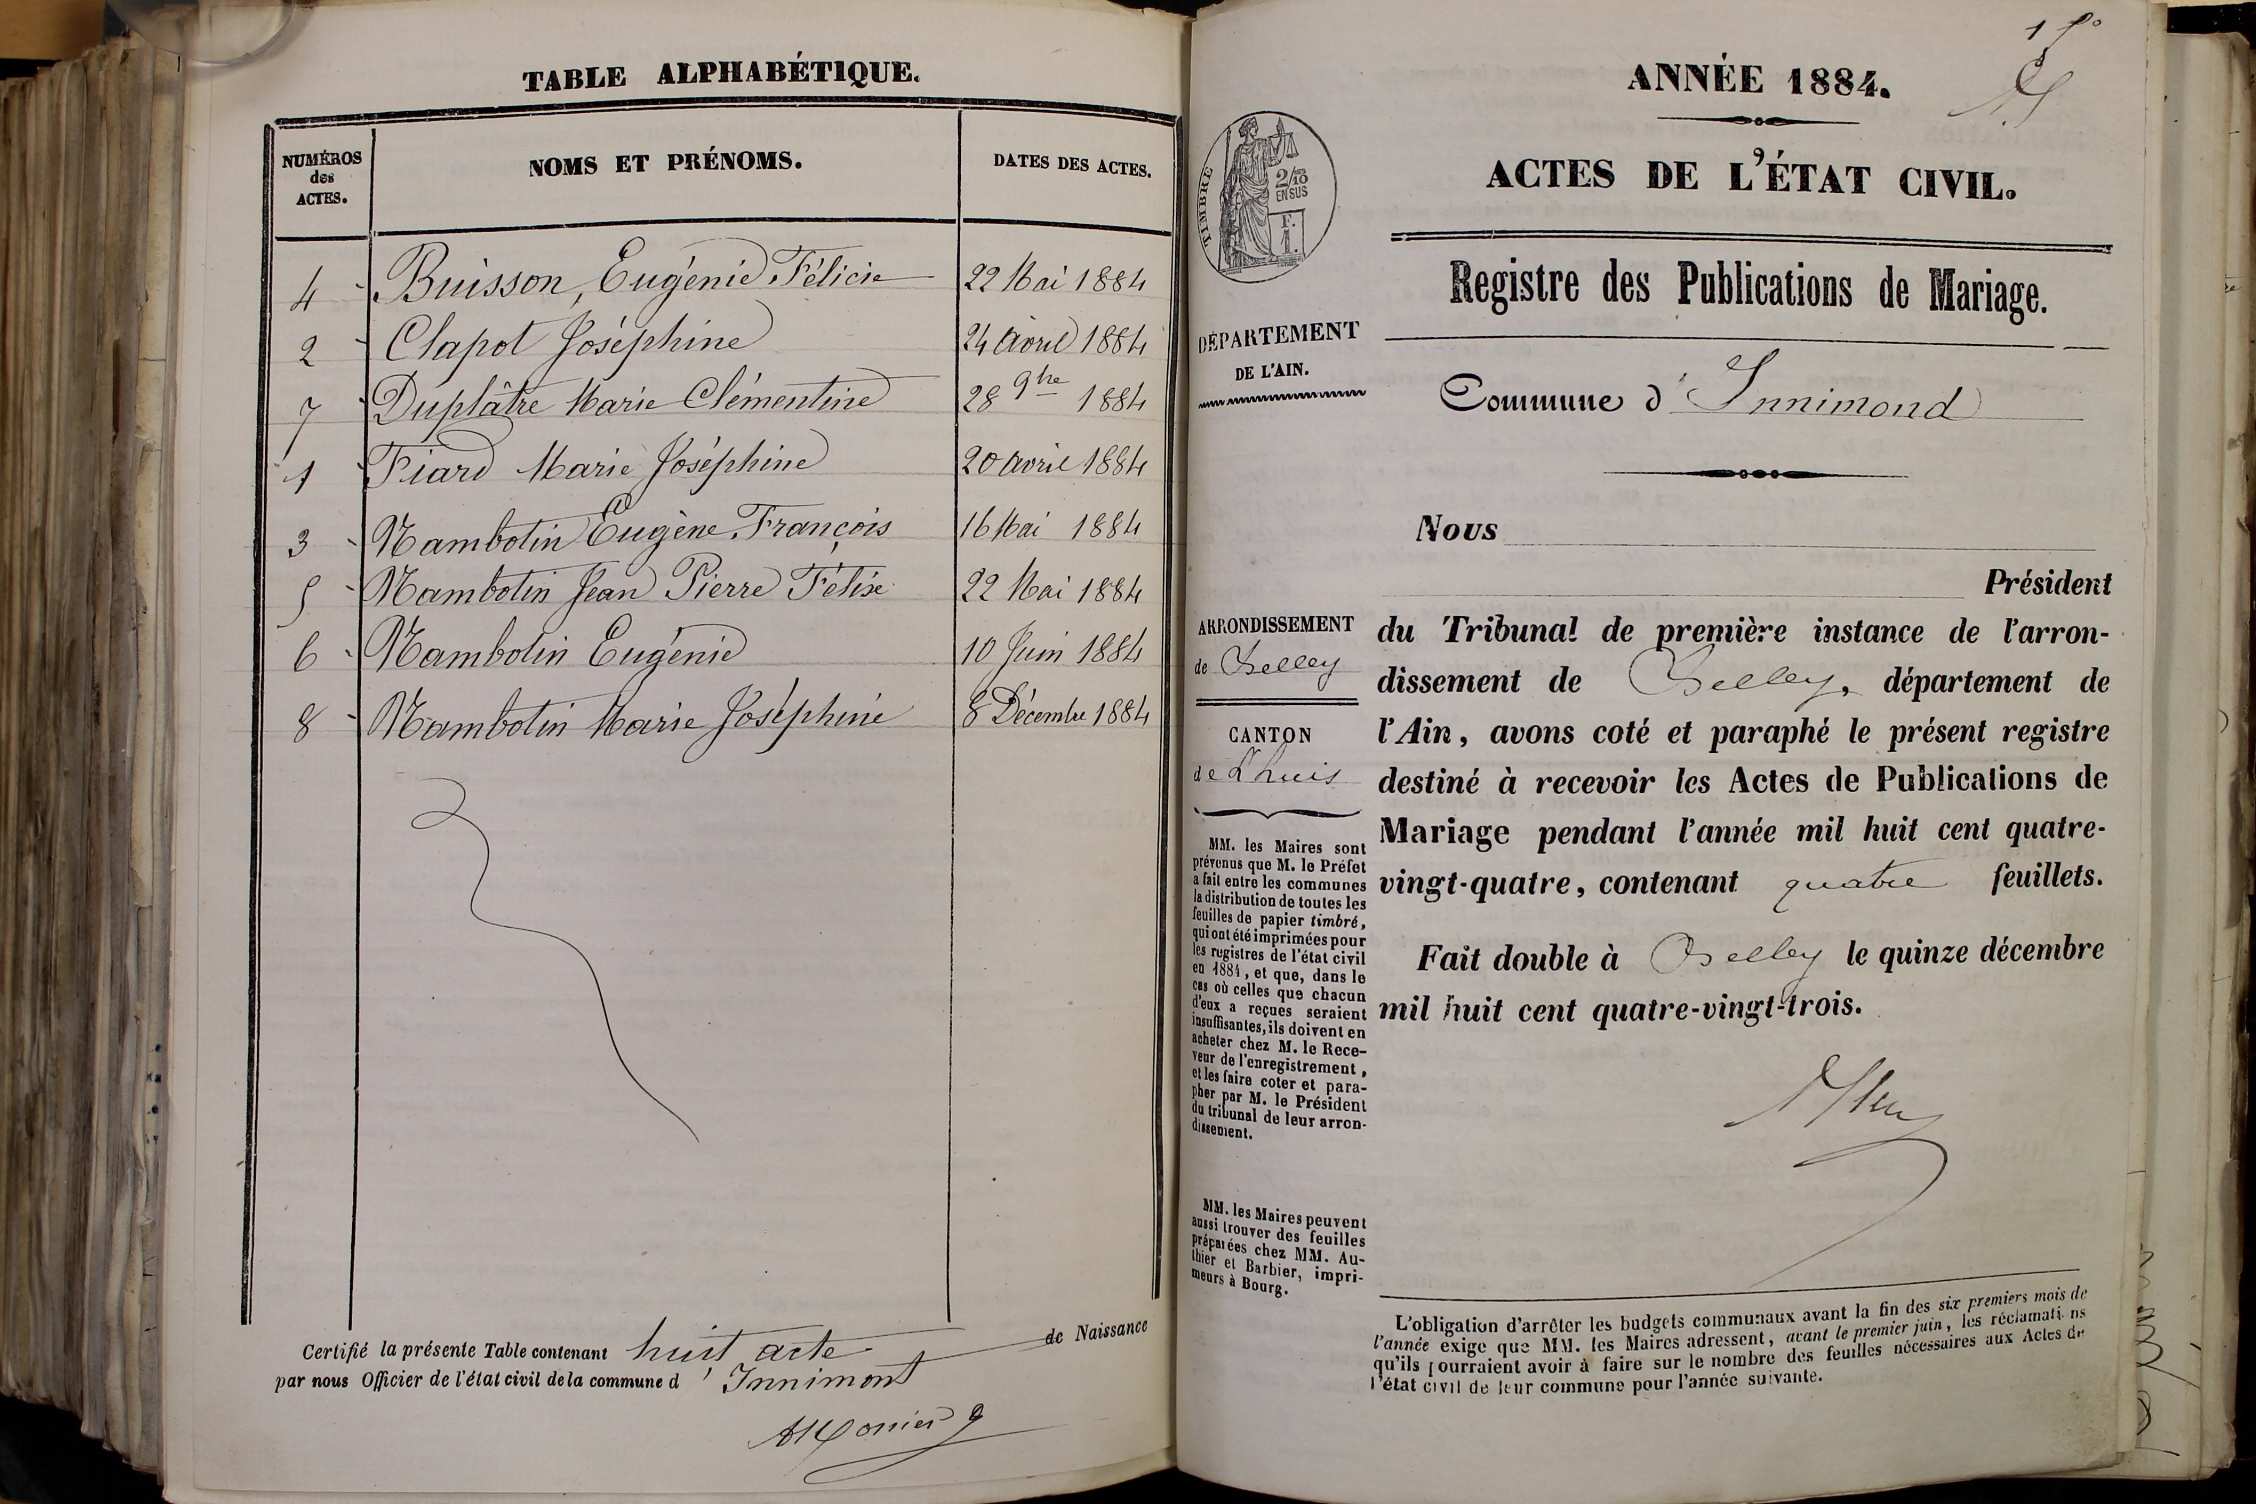 TABLE ALPHABÉTIQUE.
NUMÉROS
des
ACTES.
NOMS ET PRÉNOMS.
DATES DES ACTES.
4 Buisson, Eugénie Félicie 22 Mai 1884
2 Clapot Joséphine 24 avril 1884
7 Duplâtre Marie Clémentine 28 9bre 1884
1 Fiard Marie Joséphine 20 avril 1884
3 Mambotin Eugène François 16 Mai 1884
5 Mambotin Jean Pierre Félix 22 Mai 1884
6 Mambotin Eugénie 10 Juin 1884
8 Mambotin Marie Joséphine 8 Décembre 1884
Certifié la présente Table contenant huit acte de Naissance
par nous Officier de l'état civil de la commune d' Innimont
1 fo
ANNÉE 1884.
ACTES DE L'ÉTAT CIVIL.
TIMBRE
2/10
EN SUS
F.
1.
Registre des Publications de Mariage.
DÉPARTEMENT
DE L'AIN.
Commune d'Innimond
Nous
Président
du Tribunal de première instance de l'arron-
dissement de Belley, département de
l'Ain, avons coté et paraphé le présent registre
destiné à recevoir les Actes de Publications de
Mariage pendant l'année mil huit cent quatre-
vingt-quatre, contenant quatre feuillets.
Fait double à Belley le quinze décembre
mil huit cent quatre-vingt-trois.
ARRONDISSEMENT
de Belley
CANTON
de Lhuis
MM. les Maires sont
prévenus que M. le Préfet
a fait entre les communes
la distribution de toutes les
feuilles de papier timbré,
qui ont été imprimées pour
les registres de l'état civil
en 1884, et que, dans le
cas où celles que chacun
d'eux a reçues seraient
insuffisantes, ils doivent en
acheter chez M. le Rece-
veur de l'enregistrement,
et les faire coter et para-
pher par M. le Président
du tribunal de leur arron-
dissement.
MM. les Maires peuvent
aussi trouver des feuilles
préparées chez MM. Au-
thier et Barbier, impri-
meurs à Bourg.
L'obligation d'arrêter les budgets communaux avant la fin des six premiers mois de
l'année exige que MM. les Maires adressent, avant le premier juin, les réclamations
qu'ils pourraient avoir à faire sur le nombre des feuilles nécessaires aux Actes de
l'état civil de leur commune pour l'année suivante.